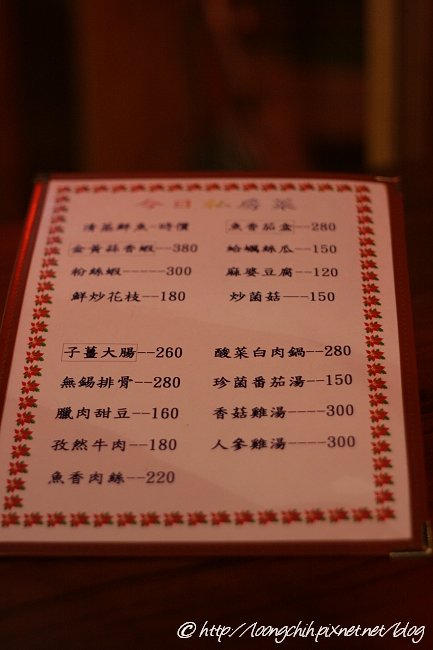 今日私房菜
清蒸鮮魚-時價
金黃蒜香蝦--380
粉絲蝦-----300
鮮炒花枝--180
魚香茄盒--280
蛤蠣絲瓜--150
麻婆豆腐--120
炒菌菇---150
子薑大腸--260
無錫排骨--280
臘肉甜豆--160
孜然牛肉--180
魚香肉絲--220
酸菜白肉鍋--280
珍菌番茄湯--150
香菇雞湯----300
人參雞湯----300
©http://loongchih.pixnet.net/blog